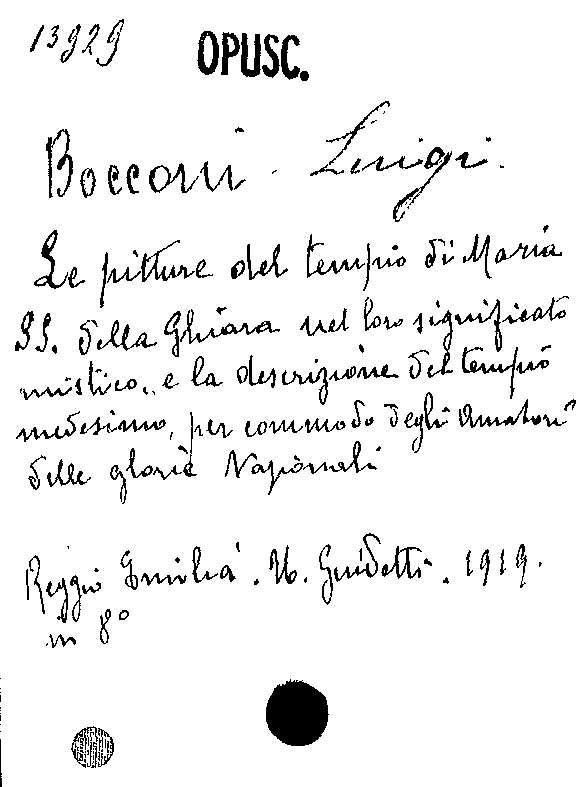 13929
OPUSC.
Bocconi Luigi.
Le pitture del tempio di Maria
SS. della Ghiara nel loro significato
mistico, e la descrizione del tempio
medesimo, per commodo degli amatori
delle glorie Nazionali
Reggio Emilia. U. Guidetti. 1919.
in 8°